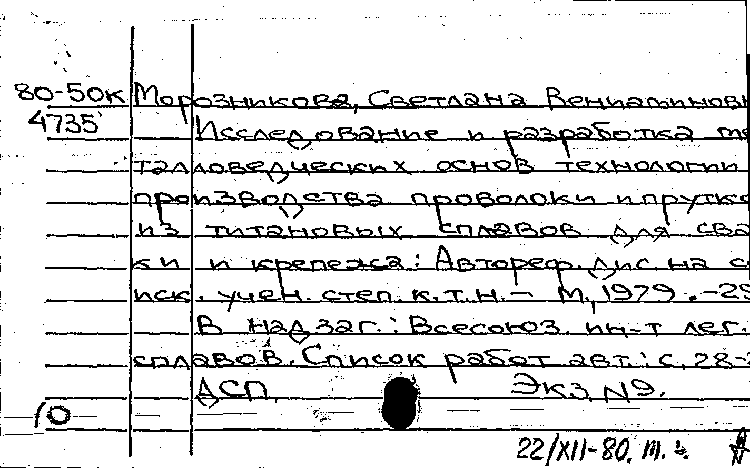 80-50к Морозникова, Светлана Вениаминовн
4735 Исследование и разработка ме
талловедческих основ технологии
производства проволоки и прутко
из титановых сплавов для сва
ки и крепежа: Автореф. дис. на со
иск. учен. степ. к.т.н. – М., 1979. – 29
В надзаг.: Всесоюз. ин-т лег.
сплавов. Список работ авт.: с. 28-2
ДСП. Экз. №9.
10
22/XII-80.